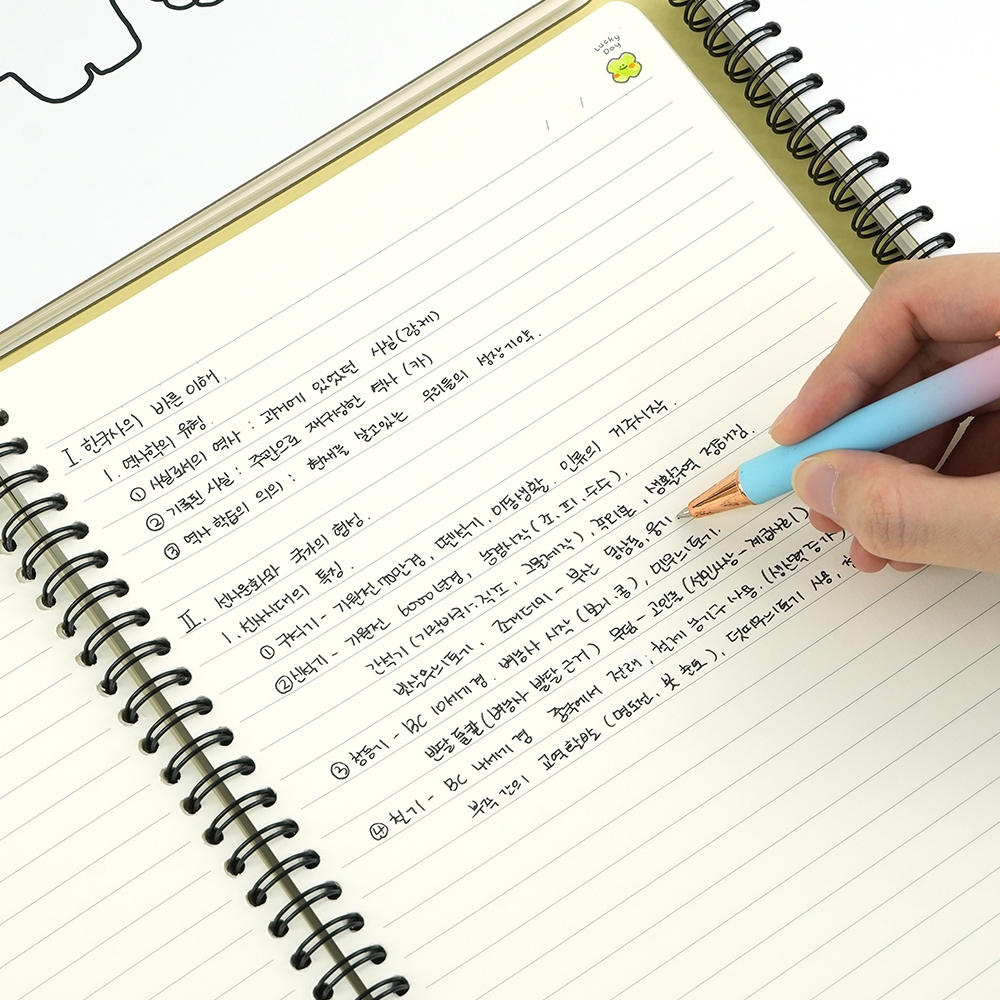 Lucky
Day
/ /
I. 한국사의 바른 이해.
1. 역사학의 유형.
① 사실로서의 역사 : 과거에 있었던 사실(랑케)
② 기록된 사실 : 주관으로 재구성한 역사 (카)
③ 역사 학습의 의의 : 현재를 살고있는 우리들의 성장기약.
II. 선사문화와 국가의 형성.
1. 선사시대의 특징.
① 구석기 - 기원전 70만년경, 뗀석기, 이동생활. 인류의 거주시작.
② 신석기 - 기원전 6000년경, 농경시작 (조, 피, 수수),
간석기 (가락바퀴:직조, 그물제작), 움집, 생활영역 정해짐.
빗살무늬토기, 조개더미 - 부산 동삼동, 웅기
③ 청동기 - BC 10세기경. 벼농사 시작 (보리, 콩), 민무늬토기.
반달돌칼 (벼농사 발달 근거) 무덤 - 고인돌 (선민사상 - 제정분리)
④ 철기 - BC 4세기경 중국에서 전래, 철제 농기구 사용. (생산력증가)
부족 간의 교역확발 (명도전, 붓 출토), 덧띠무늬토기 사용,